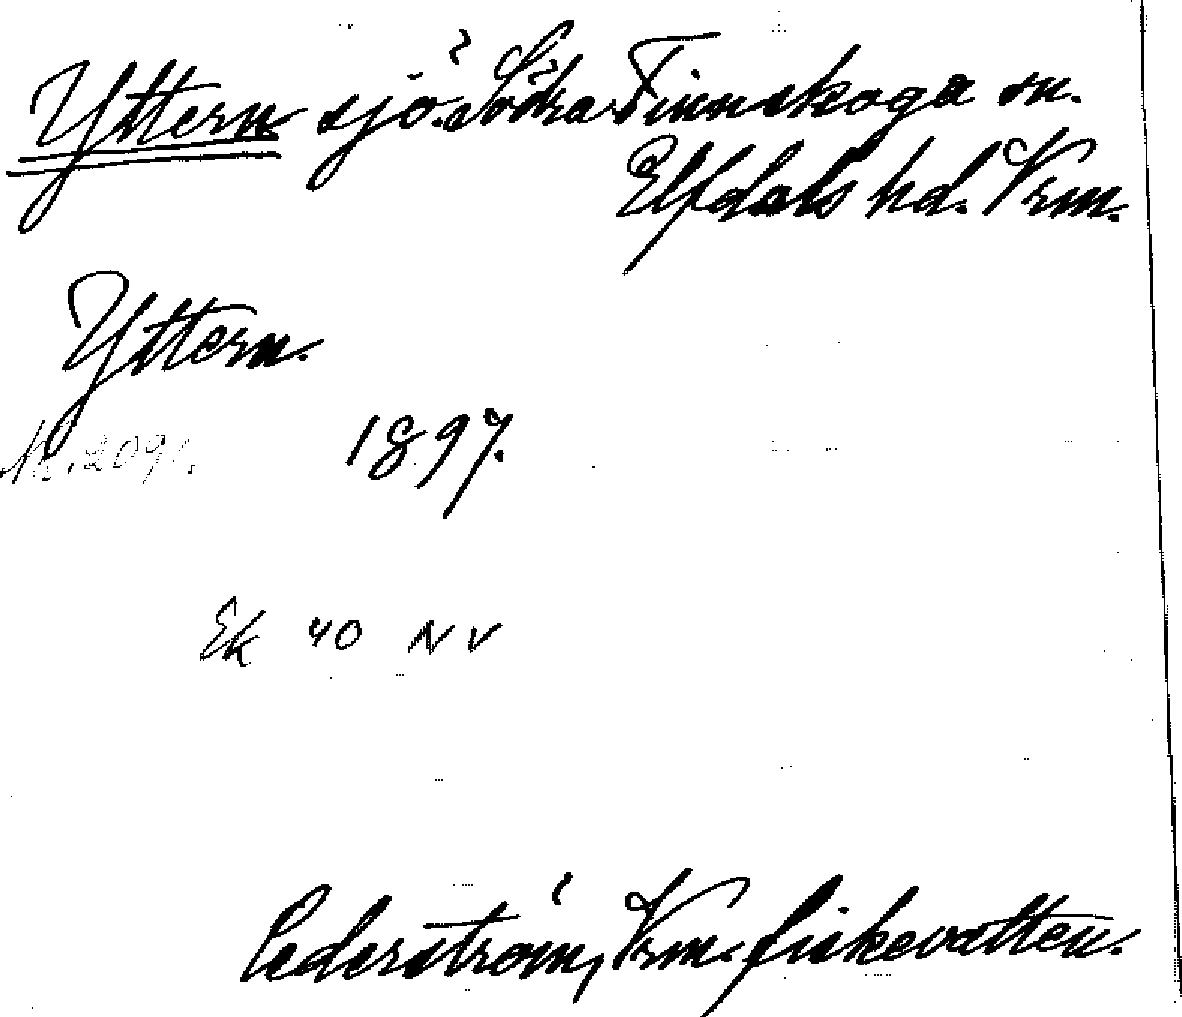 Yttern sjö. Södra Finnskoga sn.
Elfdals hd. Vrm.
Yttern.
1897.
Ek 40 NV
Cederström, Vrm. fiskevatten.